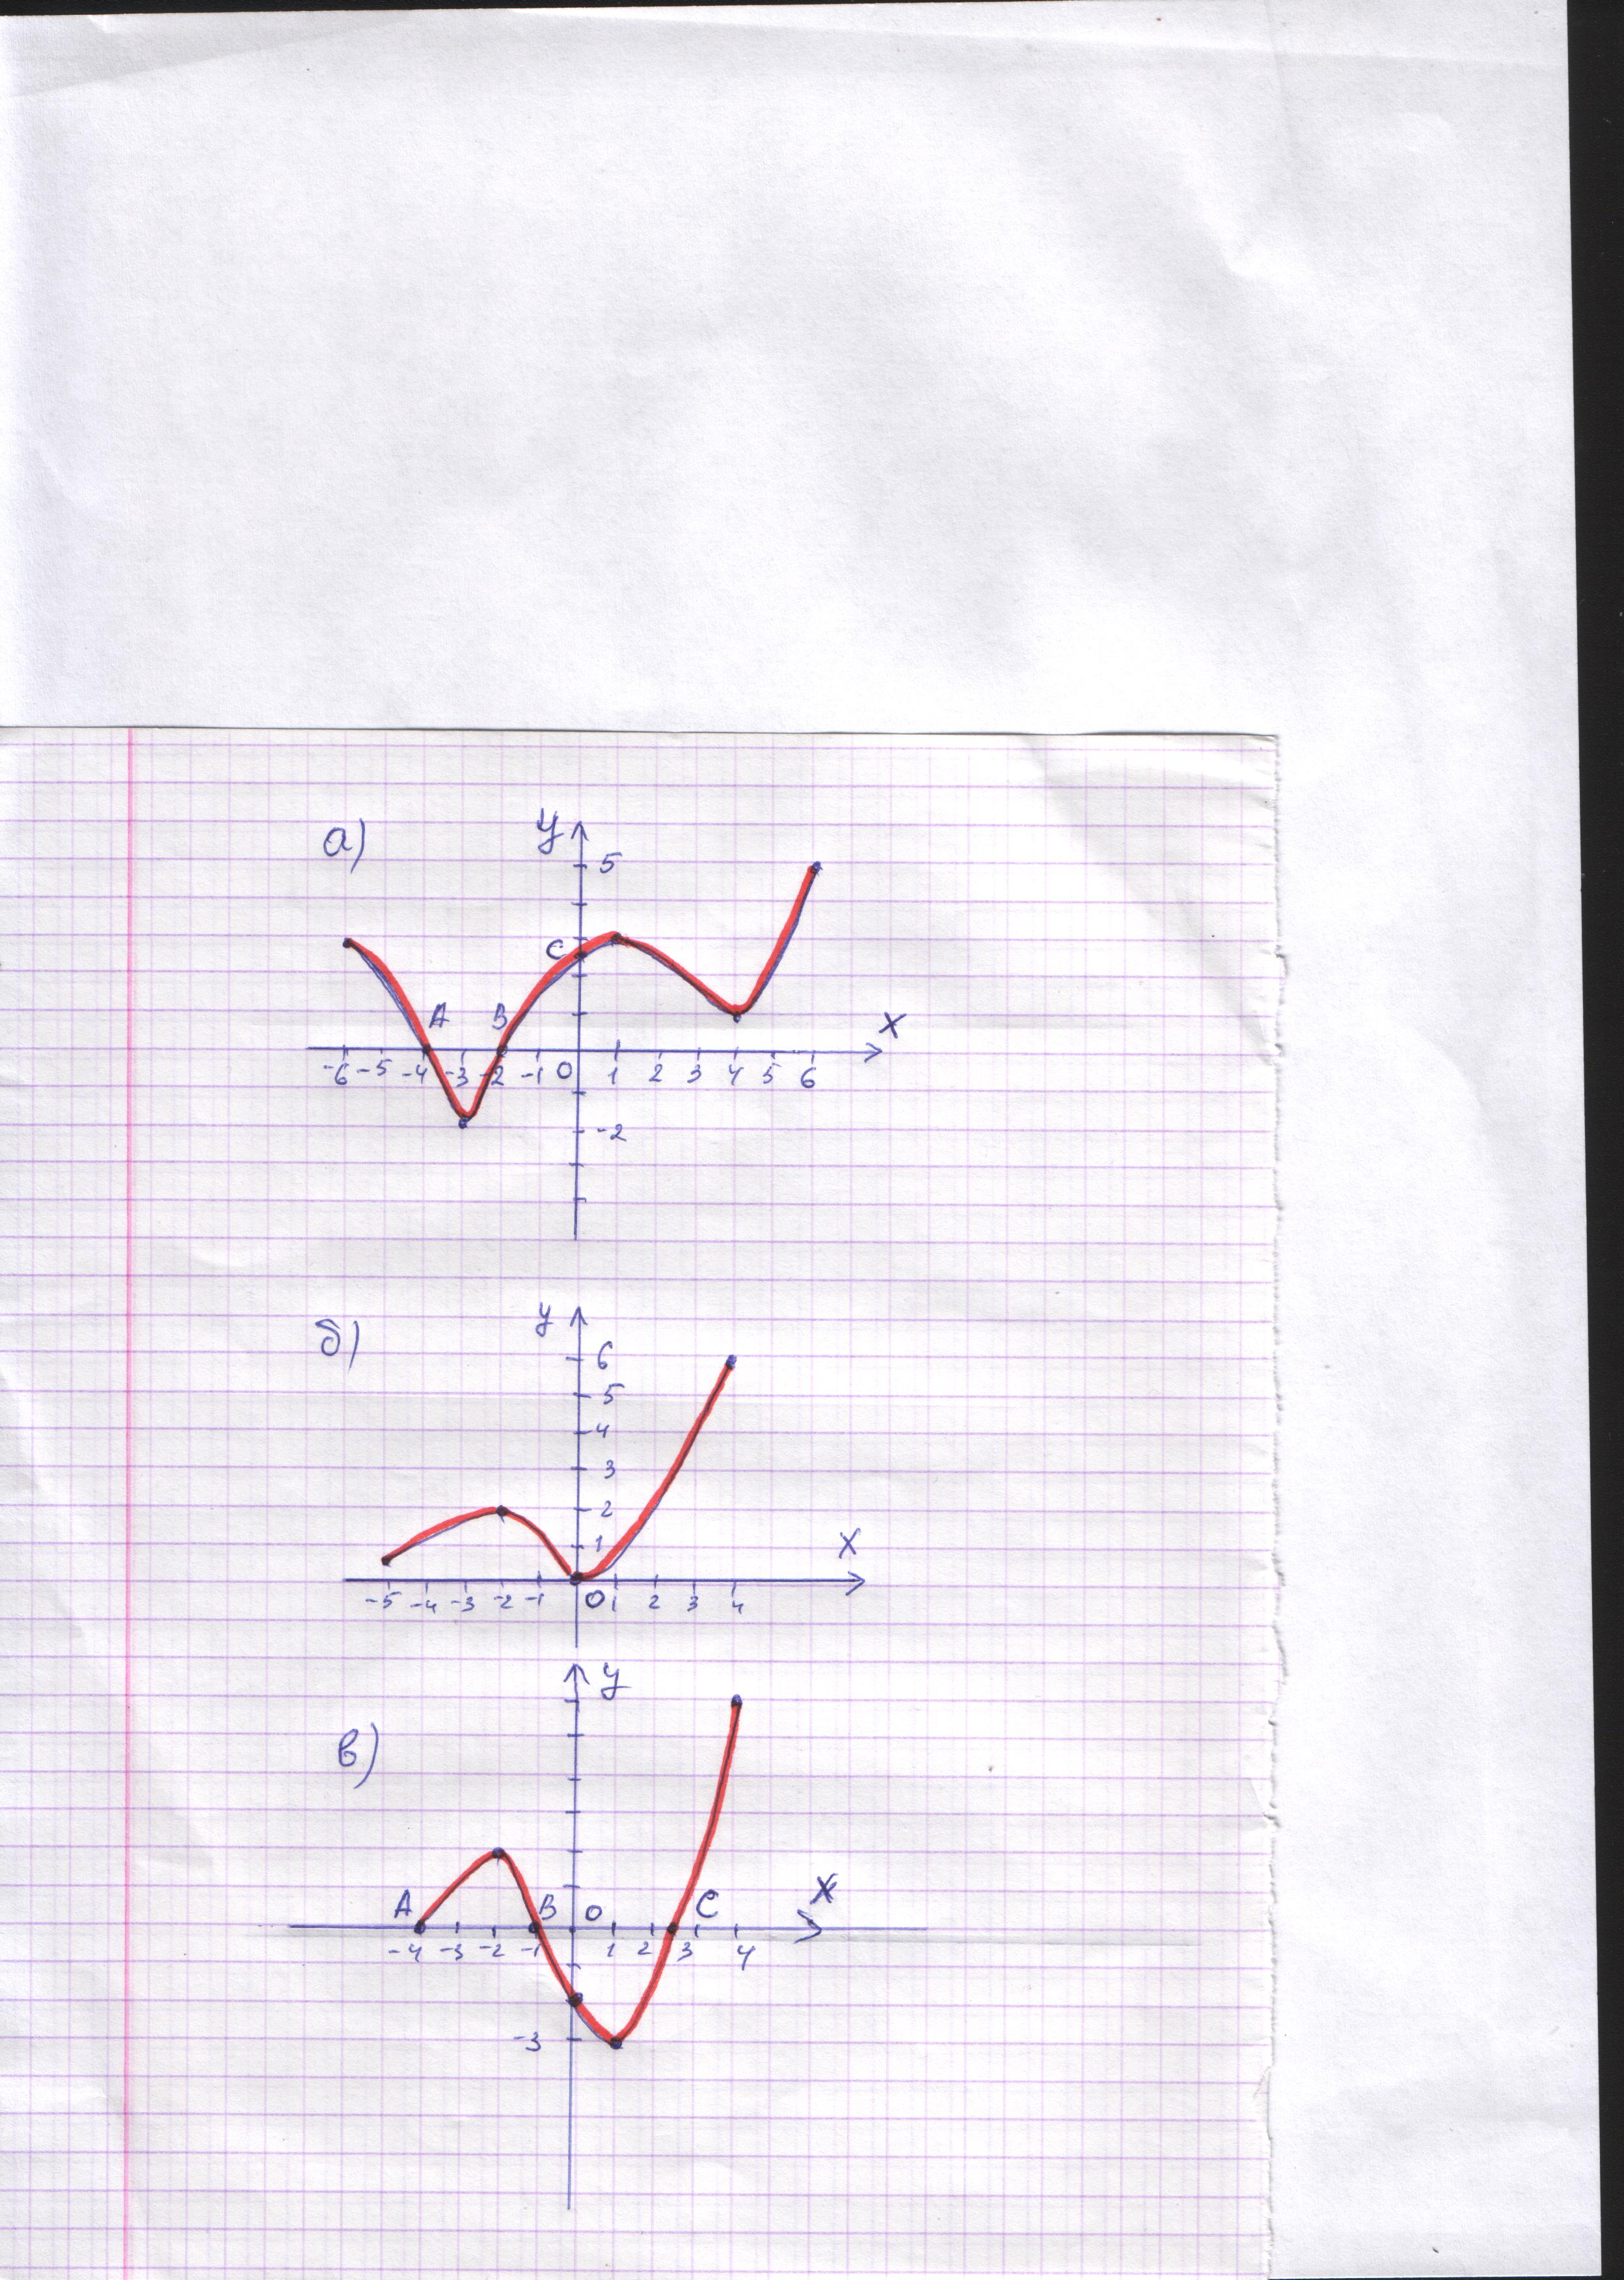 а)
y
5
C
A B
X
-6 -5 -4 -3 -2 -1 0 1 2 3 4 5 6
-2
б)
y
6
5
4
3
2
1
X
-5 -4 -3 -2 -1 0 1 2 3 4
y
в)
A B 0 C X
-4 -3 -2 -1 1 2 3 4
-3